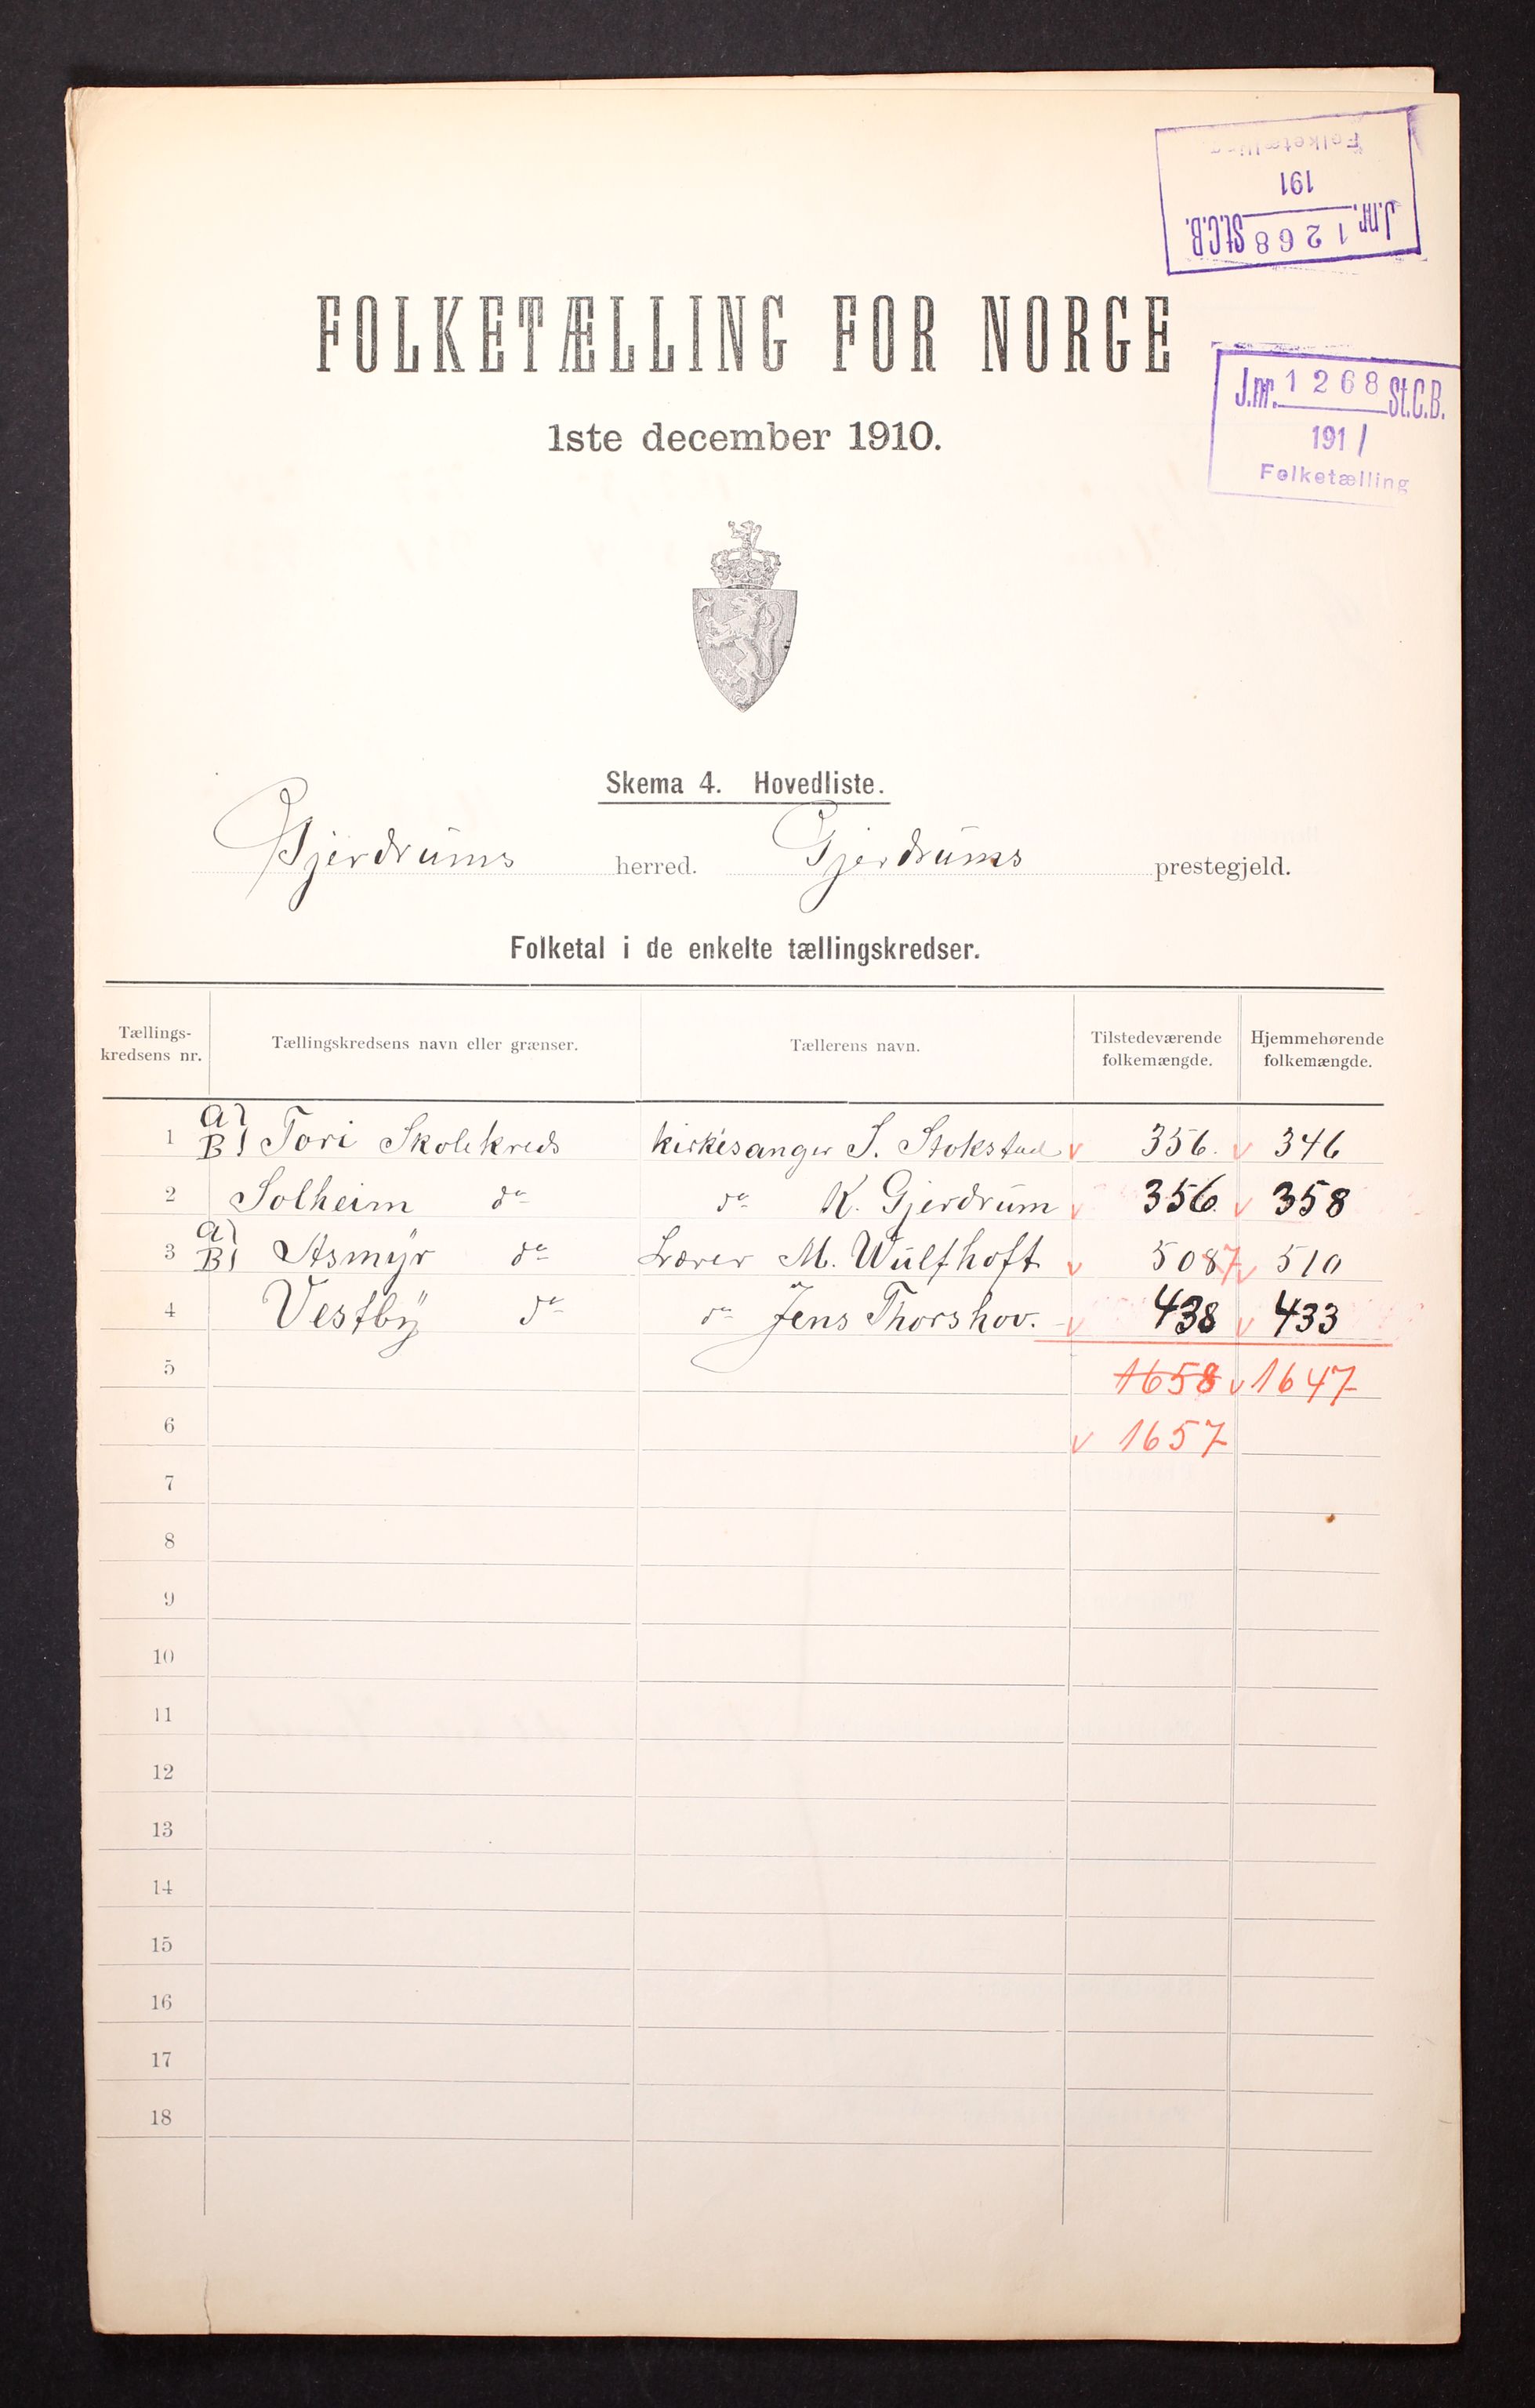 Folketælling
191
J.nr. 1268 St.C.B.
FOLKETÆLLING FOR NORGE
1ste december 1910.
J.nr. 1268 St.C.B.
1911
Folketælling
Skema 4. Hovedliste.
Gjerdrums herred. Gjerdrums prestegjeld.
Folketal i de enkelte tællingskredser.
Tællings-
kredsens nr.
Tællingskredsens navn eller grænser.
Tællerens navn.
Tilstedeværende
folkemængde.
Hjemmehørende
folkemængde.
1 A) B) Tori Skolekreds Kirkesanger S. Stokstad v 356. v 346
2 Solheim do do K. Gjerdrum v 356. v 358
3 A) B) Asmyr do Lærer M. Wulfhoft v 5087 v 510
4 Vestby do do Jens Thorshov. v 438 v 433
5 1658 v 1647
6 v 1657
7
8
9
10
11
12
13
14
15
16
17
18